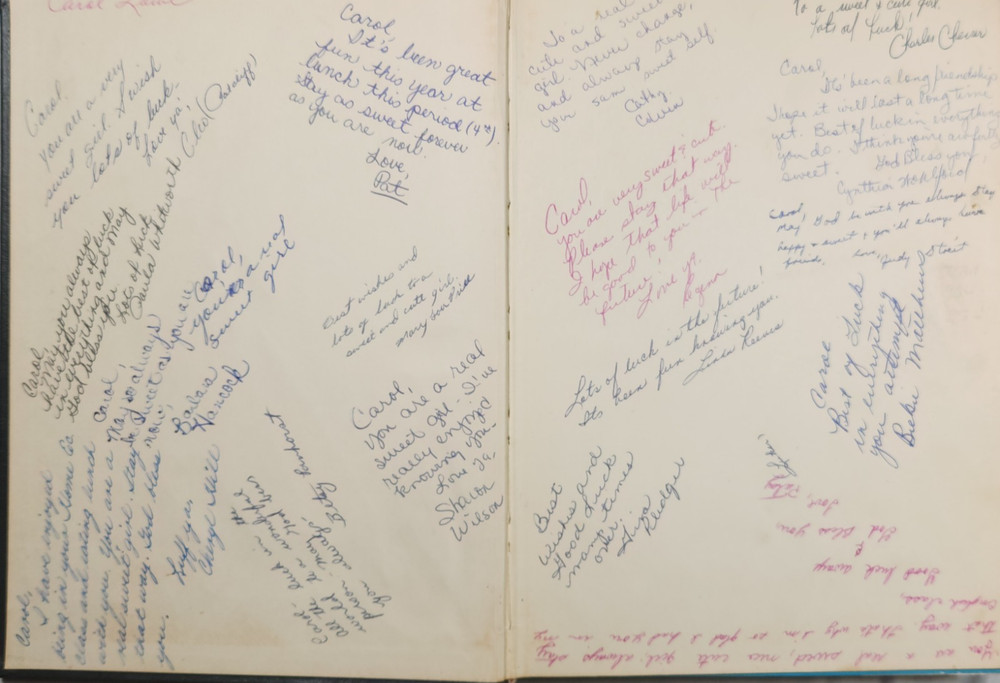 Carol
Carol,
You are a very
sweet girl. I wish
you lots of luck.
Love ya',
Cleo
Carol,
It's been great
fun this year at
lunch this period (4th).
Stay as sweet forever
as you are
now.
Love,
Pat
Carol
May you always
have the best of luck
in everything and may
God bless you.
Lots of luck
Paula Whitworth
Carol,
you're a real
sweet girl
Barbara
Hancock
Carol,
May you always
be as sweet as you are
now.
Best wishes and
lots of luck to a
sweet and cute girl.
Mary
Carol,
You are a real
sweet girl. I've
really enjoyed
knowing you.
Love ya,
Sharon
Wilson
Carol,
I have enjoyed
being in your
class and eating lunch
with you. You are a
real sweet girl. Stay
that way. God bless
you.
Luff ya,
Cheryl Hill
Carol-
all the luck in the
world to a wonderful
person. May God bless
you always.
To a real
cute and sweet
girl. Never change,
and always stay
you sam sweet self.
Cathy
To a sweet & cute girl.
Lots of Luck!
Charles
Carol,
It's been a long friendship
I hope it will last a long time
yet. Best of luck in everything
you do. I think you're awfully
sweet.
God Bless you,
Cynthia
Carol,
you are very sweet & cute.
Please stay that way.
I hope that life will
be good to you in the
future!
Love ya,
Carol,
May God be with you always. Stay
happy & sweet & you'll always have
friends.
Love, Judy
Lots of luck in the future!
It's been fun knowing you.
Linda Reeves
Carol
Best of Luck
in everything
you attempt
Best
Wishes and
Good Luck
many times
over.
You are a real sweet, nice cute girl. always stay
that way. that's why I'm so glad I had you in my
English class,
Good luck always
&
God Bless you
Love,
Patsy